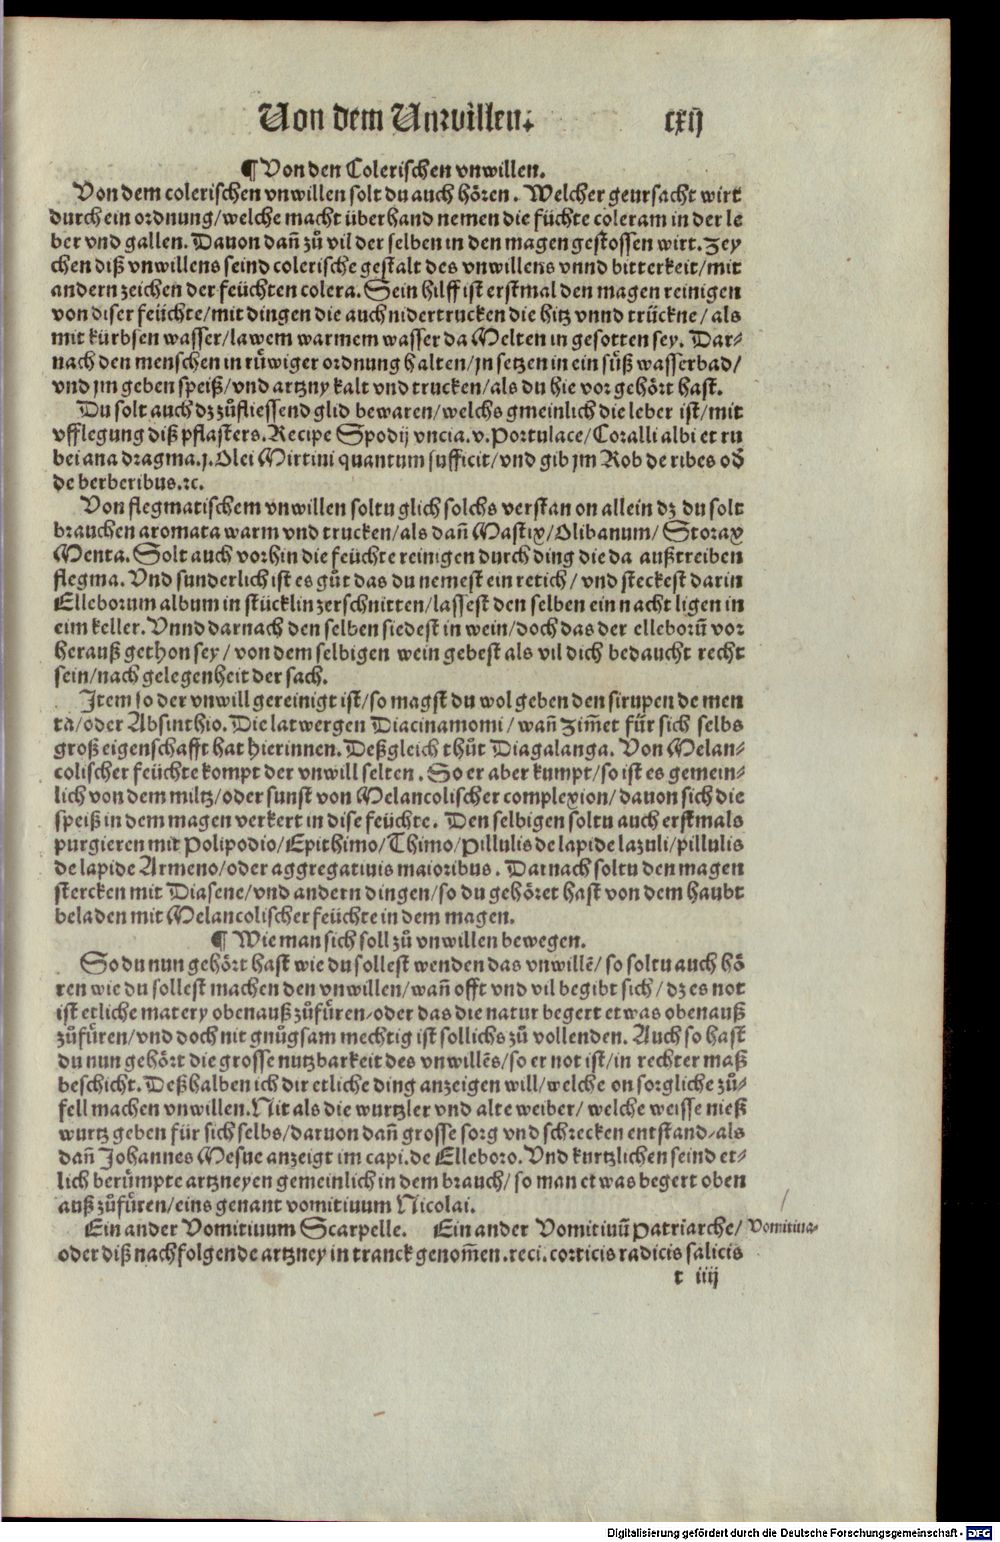 Von dem Unwillen. cxij
¶ Von den Colerischen vnwillen.
Von dem colerischen vnwillen solt du auch hören. Welcher geursacht wirt
durch ein ordnung/welche macht überhand nemen die füchte coleram in der le
ber vnd gallen. Dauon dañ zů vil der selben in den magen gestossen wirt. Zey
chen diß vnwillens seind colerische gestalt des vnwillens vnnd bitterkeit/mit
andern zeichen der feüchten colera. Sein hilff ist erstmal den magen reinigen
von diser feüchte/mit dingen die auch nidertrucken die hitz vnnd trückne/als
mit kürbsen wasser/lawem warmem wasser da Melten in gesotten sey. Dar⸗
nach den menschen in rüwiger ordnung halten/jn setzen in ein süß wasserbad/
vnd jm geben speiß/vnd artzny kalt vnd trucken/als du hie vor gehört hast.
Du solt auch dz zůfliessend glid bewaren/welchs gmeinlich die leber ist/mit
vfflegung diß pflasters. Recipe Spodij vncia.v. Portulace/Coralli albi et ru
bei ana dragma.j. Olei Mirtini quantum sufficit/vnd gib jm Rob de ribes oď
de berberibus.ꝛc.
Von flegmatischem vnwillen soltu glich solchs verstan on allein dz du solt
brauchen aromata warm vnd trucken/als dañ Mastix/Olibanum/Storax
Menta. Solt auch vorhin die feüchte reinigen durch ding die da außtreiben
flegma. Vnd sunderlich ist es gůt das du nemest ein retich/vnd steckest darin
Elleborum album in stücklin zerschnitten/lassest den selben ein nacht ligen in
eim keller. Vnnd darnach den selben siedest in wein/doch das der elleborū vor
herauß gethon sey/von dem selbigen wein gebest als vil dich bedaucht recht
sein/nach gelegenheit der sach.
Item so der vnwill gereinigt ist/so magst du wol geben den sirupen de men
ta/oder Absinthio. Die latwergen Diacinamomi/wañ Zim̃et für sich selbs
groß eigenschafft hat hierinnen. Deßgleich thůt Diagalanga. Von Melan⸗
colischer feüchte kompt der vnwill selten. So er aber kumpt/so ist es gemein⸗
lich von dem miltz/oder sunst von Melancolischer complexion/dauon sich die
speiß in dem magen verkert in dise feüchte. Den selbigen soltu auch erstmals
purgieren mit Polipodio/Epithimo/Thimo/Pillulis de lapide lazuli/pillulis
de lapide Armeno/oder aggregatiuis maioribus. Darnach soltu den magen
stercken mit Diasene/vnd andern dingen/so du gehöret hast von dem haubt
beladen mit Melancolischer feüchte in dem magen.
¶ Wie man sich soll zů vnwillen bewegen.
So du nun gehört hast wie du sollest wenden das vnwillē/so soltu auch hö
ren wie du sollest machen den vnwillen/wañ offt vnd vil begibt sich/dz es not
ist etliche matery obenauß zůfüren/oder das die natur begert etwas obenauß
zůfüren/vnd doch nit gnůgsam mechtig ist sollichs zů vollenden. Auch so hast
du nun gehört die grosse nutzbarkeit des vnwillēs/so er not ist/in rechter maß
beschicht. Deßhalben ich dir etliche ding anzeigen will/welche on sorgliche zů⸗
fell machen vnwillen. Nit als die wurtzler vnd alte weiber/welche weisse nieß
wurtz geben für sich selbs/daruon dañ grosse sorg vnd schrecken entstand/als
dañ Johannes Mesue anzeigt im capi.de Elleboro. Vnd kurtzlichen seind et⸗
lich berümpte artzneyen gemeinlich in dem brauch/so man etwas begert oben
auß zůfüren/eins genant vomitiuum Nicolai.
Ein ander Vomitiuum Scarpelle. Ein ander Vomitiuū Patriarche/ Vomitiua⸗
oder diß nachfolgende artzney in tranck genom̃en.reci.corticis radicis salicis
t iiij
Digitalisierung gefördert durch die Deutsche Forschungsgemeinschaft - DFG